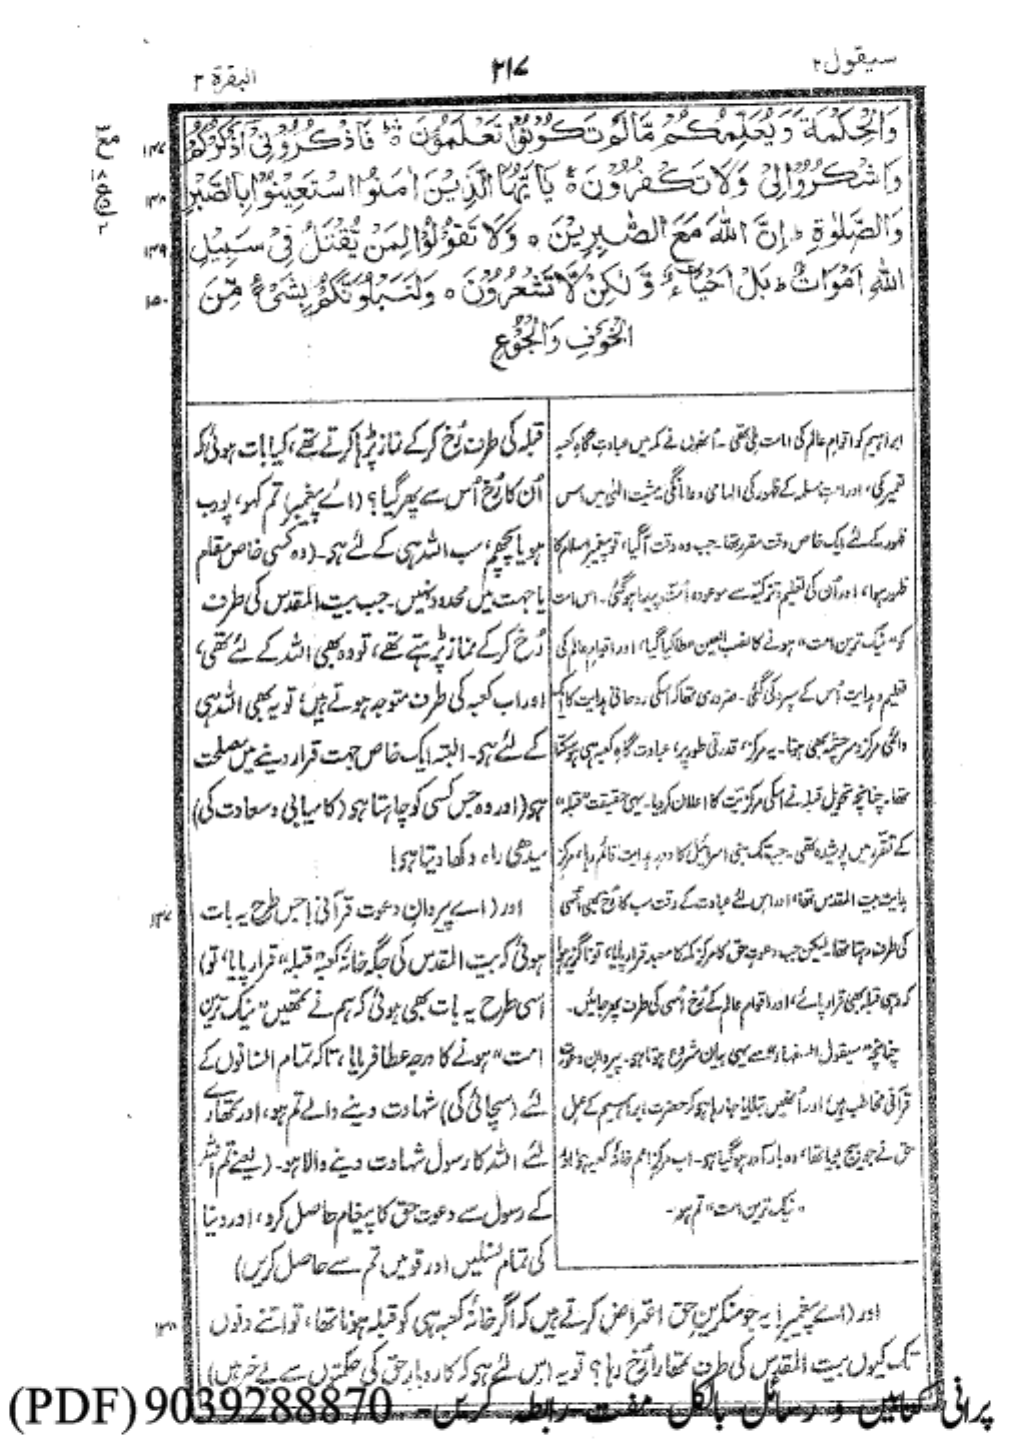 سیقول ۲
۲۱۷
البقرة ۲
وَالْحِكْمَةَ وَيُعَلِّمُكُمْ مَّا لَمْ تَكُوْنُوْا تَعْلَمُوْنَ ؕ فَاذْكُرُوْنِیْ اَذْكُرْكُمْ
۱۴۷
وَاشْكُرُوْا لِیْ وَلَا تَكْفُرُوْنِ ؕ یٰاَیُّهَا الَّذِیْنَ اٰمَنُوا اسْتَعِیْنُوْا بِالصَّبْرِ
۱۴۸
وَالصَّلٰوةِ ؕ اِنَّ اللّٰهَ مَعَ الصّٰبِرِیْنَ ہ وَلَا تَقُوْلُوْا لِمَنْ یُّقْتَلُ فِیْ سَبِیْلِ
۱۴۹
اللّٰهِ اَمْوَاتٌ ؕ بَلْ اَحْیَآءٌ وَّلٰكِنْ لَّا تَشْعُرُوْنَ ہ وَلَنَبْلُوَنَّكُمْ بِشَیْءٍ مِّنَ
۱۵۰
الْخَوْفِ وَالْجُوْعِ
ابراہیم کو اقوامِ عالم کی امامت ملی تھی۔ اُنھوں نے مکہ میں عبادت گاہِ کعبہ
تعمیر کی، اور امتِ مسلمہ کے ظہور کی الہامی دعا مانگی۔ مشیتِ الٰہی میں اس
ظہور کے لئے ایک خاص وقت مقرر تھا۔ جب وہ وقت آگیا، تو پیغمبرِ اسلام کا
ظہور ہوا، اور اُن کی تعلیم و تزکیہ سے موعودہ اُمت پیدا ہوگئی۔ اس امت
کو "نیک ترین امت" ہونے کا نصب العین عطا کیا گیا، اور اقوامِ عالم کی
تعلیم و ہدایت اُس کے سپرد کی گئی۔ ضروری تھا کہ اسکی روحانی ہدایت کا ایک
دائمی مرکز و سرچشمہ بھی ہوتا۔ یہ مرکز، قدرتی طور پر، عبادت گاہِ کعبہ ہی ہوسکتا
تھا۔ چنانچہ تحویلِ قبلہ نے اسکی مرکزیت کا اعلان کردیا۔ یہی حقیقت "قبلہ"
کے تقرر میں پوشیدہ تھی۔ جب تک بنی اسرائیل کا دورِ ہدایت قائم رہا، مرکزِ
ہدایت بیت المقدس تھا، اور اس لئے عبادت کے وقت سب کا رُخ بھی اُسی
کی طرف رہتا تھا۔ لیکن جب دعوتِ حق کا مرکز مکہ کا معبد قرار پایا، تو ناگزیر ہوا
کہ وہی قبلہ بھی قرار پائے، اور اقوامِ عالم کے رُخ اُسی کی طرف پھر جائیں۔
چنانچہ "سیقول السفہاء" سے یہی بیان شروع ہوتا ہو۔ پیروانِ دعوتِ
قرآنی مخاطب ہیں، اور اُنھیں بتلایا جارہا ہو کہ حضرت ابراہیم کے عملِ
حق نے جو بیج بویا تھا، وہ بارآور ہوگیا ہو۔ اب مرکزِ امم خانۂ کعبہ ہو، اور
"نیک ترین امت" تم ہو۔
قبلہ کی طرف رُخ کرکے نماز پڑہا کرتے تھے، کیا بات ہوئی کہ
اُن کا رُخ اُس سے پھر گیا؟ (اے پیغمبر!) تم کہو، پورب
ہو یا پچھم، سب اللہ ہی کے لئے ہو۔ (وہ کسی خاص مقام
یا جہت میں محدود نہیں۔ جب بیت المقدس کی طرف
رُخ کرکے نماز پڑہتے تھے، تو وہ بھی اللہ کے لئے تھی،
اور اب کعبہ کی طرف متوجہ ہوتے ہیں، تو یہ بھی اللہ ہی
کے لئے ہو۔ البتہ ایک خاص جہت قرار دینے میں مصلحت
ہو) اور وہ جس کسی کو چاہتا ہو (کامیابی و سعادت کی)
سیدھی راہ دکھا دیتا ہو!
اور (اے پیروانِ دعوتِ قرآنی!) جس طرح یہ بات
۱۴۳
ہوئی کہ بیت المقدس کی جگہ خانۂ کعبہ "قبلہ" قرار پایا، تو)
اسی طرح یہ بات بھی ہوئی کہ ہم نے تمھیں "نیک ترین
امت" ہونے کا درجہ عطا فرمایا، تاکہ تمام انسانوں کے
لئے (سچائی کی) شہادت دینے والے تم ہو، اور تمھارے
لئے اللہ کا رسول شہادت دینے والا ہو۔ (یعنے تم اللہ
کے رسول سے دعوتِ حق کا پیغام حاصل کرو، اور دنیا
کی تمام نسلیں اور قومیں تم سے حاصل کریں)
اور (اے پیغمبر!) یہ جو منکرینِ حق اعتراض کرتے ہیں کہ اگر خانۂ کعبہ ہی کو قبلہ ہونا تھا، تو اتنے دنوں
تک کیوں بیت المقدس کی طرف تمھارا رُخ رہا؟ تو یہ اس لئے ہو کہ کاروبارِ حق کی حکمتوں سے بے خبر ہیں)
پرانی کتابیں و رسائل بالکل مفت رابطہ کریں۔ 9039288870 (PDF)